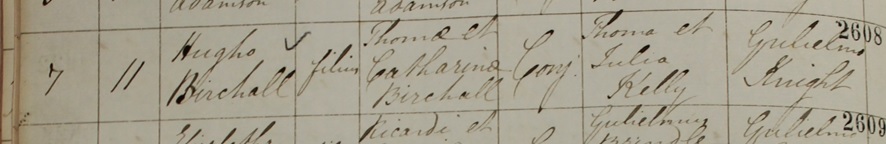 Adamson Adamson
2608
7 11 Hugho Birchall filius Thomæ et Catharinæ Birchall Conj. Thoma et Julia Kelly Gulielmo Knight
2609
Ricardi et Gulielmus Gulielmo